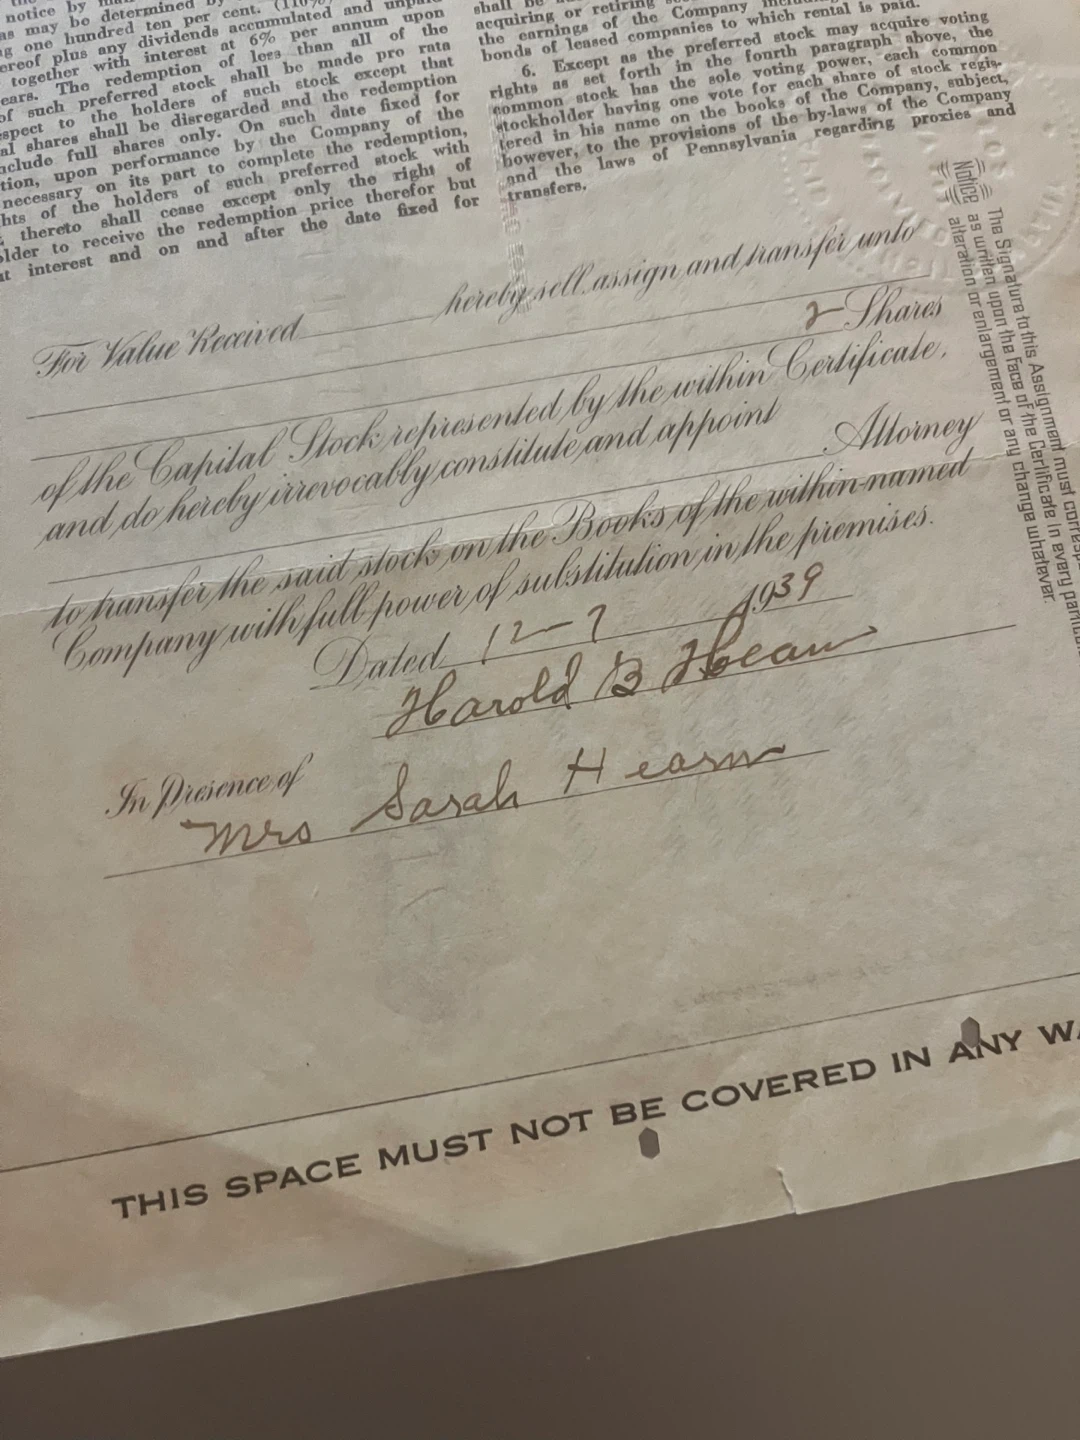 notice by
as may be determined
one hundred ten per cent. (110%)
ereof plus any dividends accumulated and unpaid
together with interest at 6% per annum upon
ears. The redemption of less than all of the
of such preferred stock shall be made pro rata
spect to the holders of such stock except that
al shares shall be disregarded and the redemption
nclude full shares only. On such date fixed for
tion, upon performance by the Company of the
necessary on its part to complete the redemption,
hts of the holders of such preferred stock with
thereto shall cease except only the right of
older to receive the redemption price therefor but
interest and on and after the date fixed for
shall be
acquiring or retiring
the earnings of the Company
bonds of leased companies to which rental is paid.
6. Except as the preferred stock may acquire voting
rights as set forth in the fourth paragraph above, the
common stock has the sole voting power, each common
stockholder having one vote for each share of stock regis-
tered in his name on the books of the Company, subject,
however, to the provisions of the by-laws of the Company
and the laws of Pennsylvania regarding proxies and
transfers.
Notice
The Signature to this Assignment must corresp
as written upon the face of the Certificate in every particu
alteration or enlargement or any change whatever.
For Value Received hereby sell, assign and transfer unto
2 Shares
of the Capital Stock represented by the within Certificate,
and do hereby irrevocably constitute and appoint
Attorney
to transfer the said stock on the Books of the within-named
Company with full power of substitution in the premises.
Dated 12-7 1939
Harold B Hearn
In Presence of
Mrs Sarah Hearn
THIS SPACE MUST NOT BE COVERED IN ANY WA